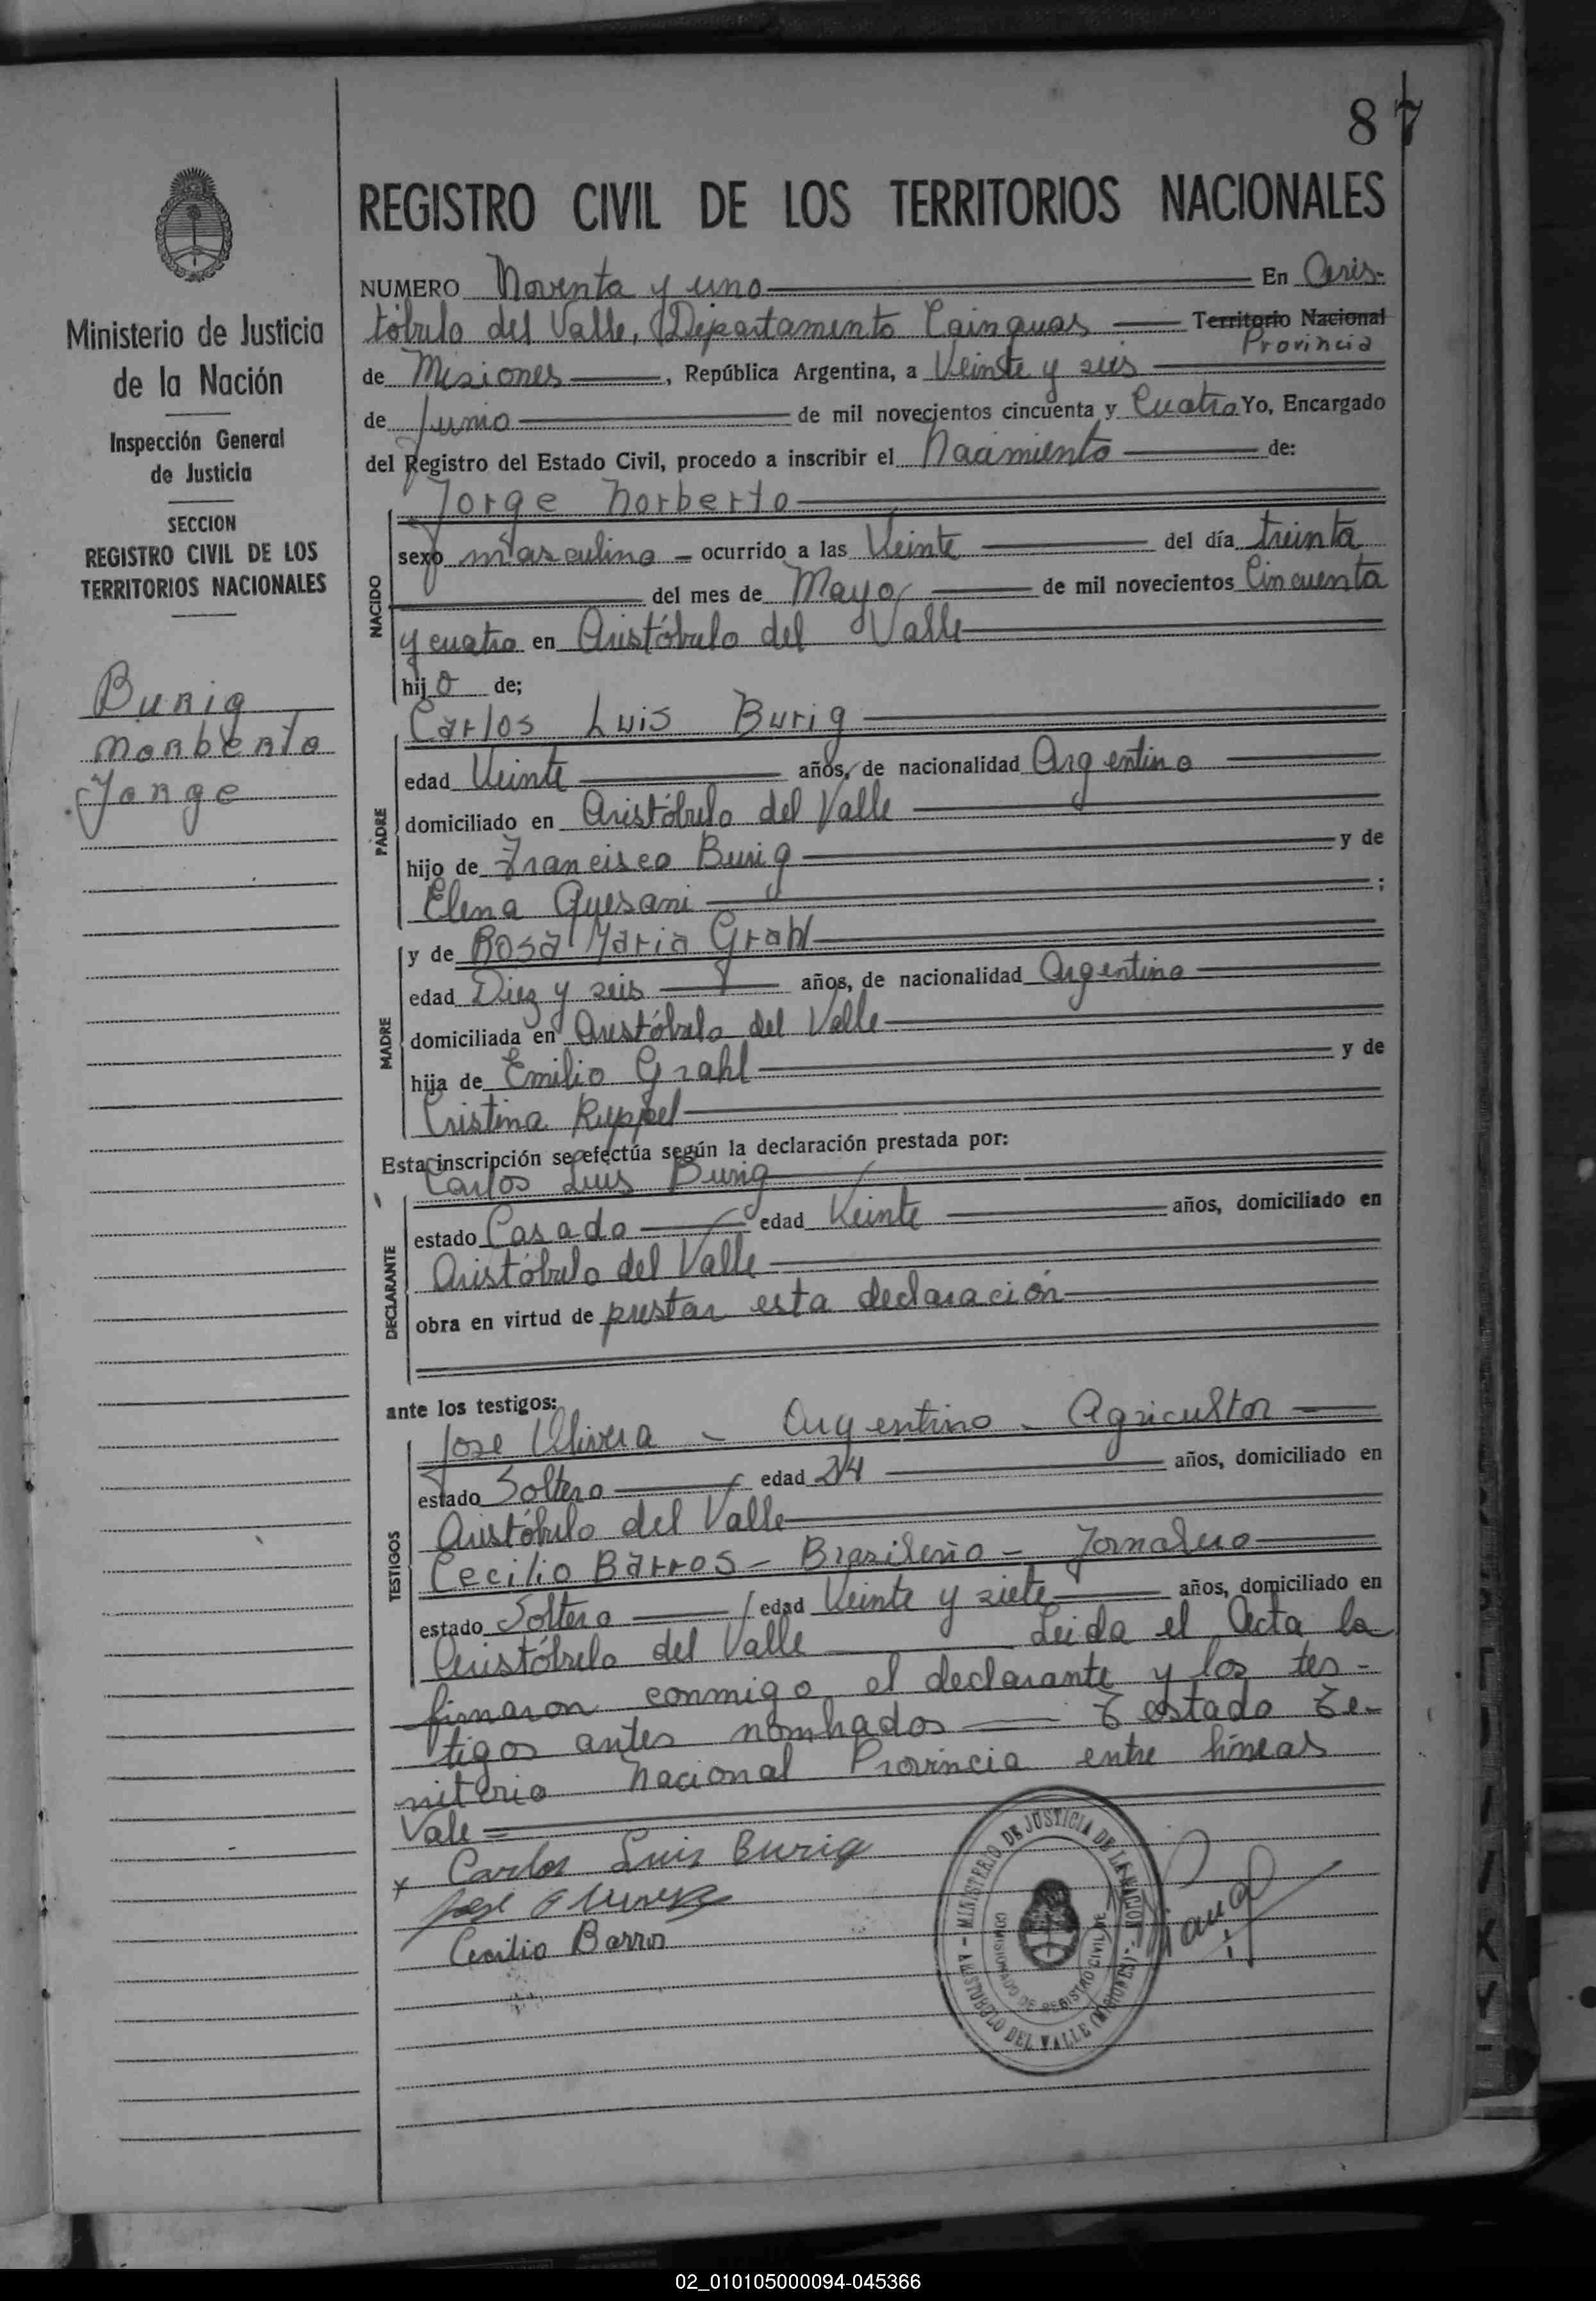 87
REGISTRO CIVIL DE LOS TERRITORIOS NACIONALES
Ministerio de Justicia
de la Nación
Inspección General
de Justicia
SECCION
REGISTRO CIVIL DE LOS
TERRITORIOS NACIONALES
Burig
Norberto
Jorge
NUMERO Noventa y uno En Aris-
tóbulo del Valle, Departamento Cainguas Territorio Nacional
Provincia
de Misiones, República Argentina, a Veinte y seis
de Junio de mil novecientos cincuenta y Cuatro Yo, Encargado
del Registro del Estado Civil, procedo a inscribir el Nacimiento de:
NACIDO
Jorge Norberto
sexo masculino - ocurrido a las Veinte del día treinta
del mes de Mayo de mil novecientos Cincuenta
y cuatro en Aristóbulo del Valle
hijo de;
PADRE
Carlos Luis Burig
edad Veinte años, de nacionalidad Argentino
domiciliado en Aristóbulo del Valle
hijo de Francisco Burig y de
Elena ;
MADRE
y de Rosa Maria Grahl
edad Diez y seis años, de nacionalidad Argentina
domiciliada en Aristóbulo del Valle
hija de Emilio Grahl y de
Cristina Ruppel
Esta inscripción se efectúa según la declaración prestada por:
DECLARANTE
Carlos Luis Burig
estado Casado edad Veinte años, domiciliado en
Aristóbulo del Valle
obra en virtud de prestar esta declaración
ante los testigos:
TESTIGOS
Jose Olivera - Argentino - Agricultor
estado Soltero edad 24 años, domiciliado en
Aristóbulo del Valle
Cecilio Barros - Brasileño - Jornalero
estado Soltero edad Veinte y siete años, domiciliado en
Aristóbulo del Valle Leida el Acta la
firmaron conmigo el declarante y los tes-
tigos antes nombados Testado Te-
rritorio Nacional Provincia entre líneas
Vale =
x Carlos Luis Burig
Jose Olivera
Cecilio Barros
MINISTERIO DE JUSTICIA DE LA NACION - ARISTOBULO DEL VALLE (MISIONES) -
COMISIONADO DE REGISTRO CIVIL DE
02_010105000094-045366